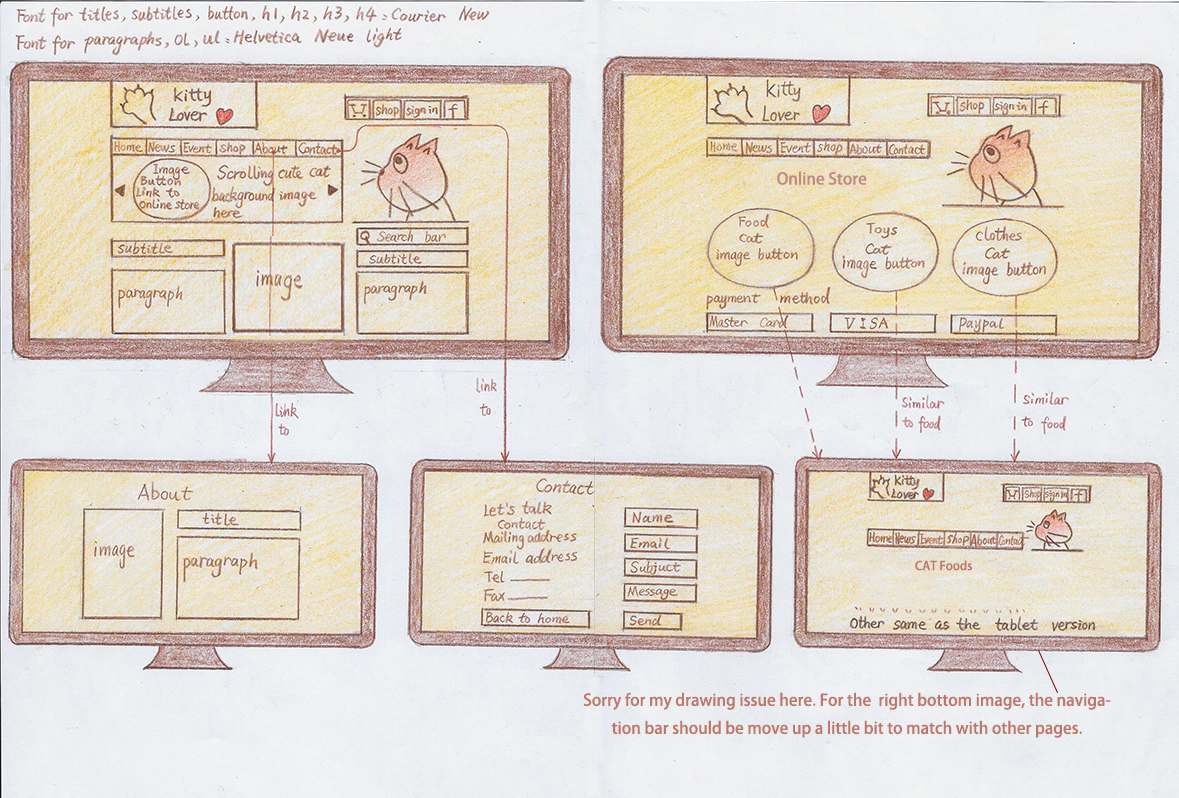 Font for titles, subtitles, button, h1, h2, h3, h4 = Courier New
Font for paragraphs, OL, ul = Helvetica Neue light
Kitty
Lover
shop sign in f
Home News Event shop About Contact
Image
Button
Link to
online store
Scrolling cute cat
background image
here
Search bar
subtitle
subtitle
paragraph
image
paragraph
Kitty
Lover
shop sign in f
Home News Event shop About Contact
Online Store
Food
Cat
image button
Toys
Cat
image button
clothes
Cat
image button
payment method
Master Card
VISA
Paypal
Link
to
link
to
Similar
to food
Similar
to food
About
image
title
paragraph
Contact
Let's talk
Contact
Mailing address
Email address
Tel
Fax
Back to home
Name
Email
Subjuct
Message
Send
Kitty
Lover
Shop sign in f
Home News Event Shop About Contact
CAT Foods
Other same as the tablet version
Sorry for my drawing issue here. For the right bottom image, the naviga-
tion bar should be move up a little bit to match with other pages.